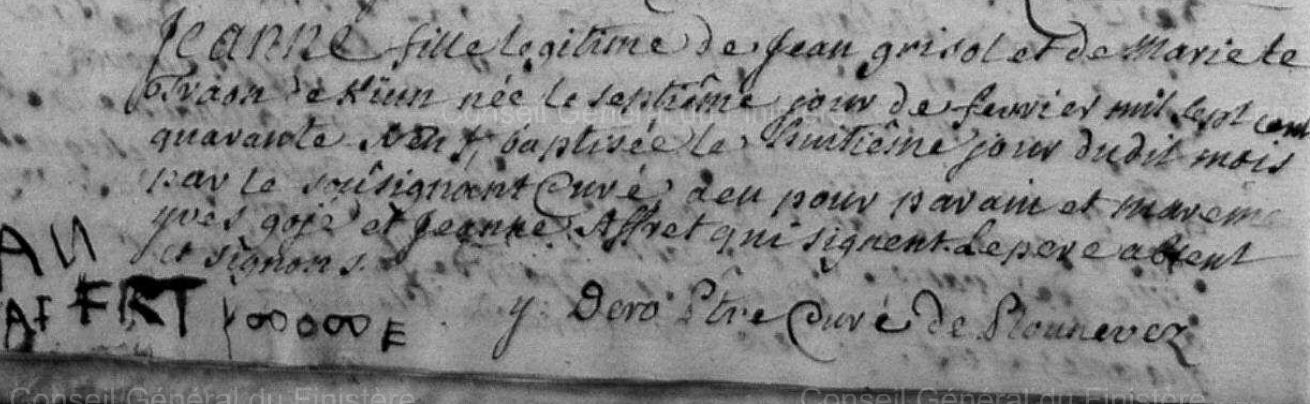 Jeanne fille legitime de Jean grisol et de Marie le
née le septième jour de fevrier mil sept cent
quarante baptisée le huitième jour dudit mois
par le soûsignant Curé a eu pour parain et mareine
yves goje et Jeanne Affret qui signent. Le pere absent
et signons.
AN
AF FRT
y Dero Ptre Curé de Plounevez
Conseil Général du Finistère
Conseil Général du Finistère
Conseil Général du Finistère